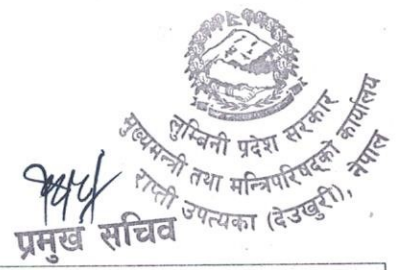 लुम्बिनी प्रदेश सरकार
मुख्यमन्त्री तथा मन्त्रिपरिषद्को कार्यालय
राप्ती उपत्यका (देउखुरी), नेपाल
प्रमुख सचिव